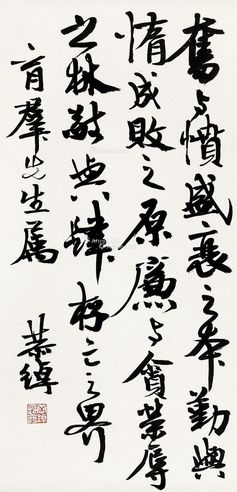 奮與憤盛衰之本勤與
惰成敗之原廉與貪榮辱
之林敬與肆存亡之界
育羣先生属
恭绰